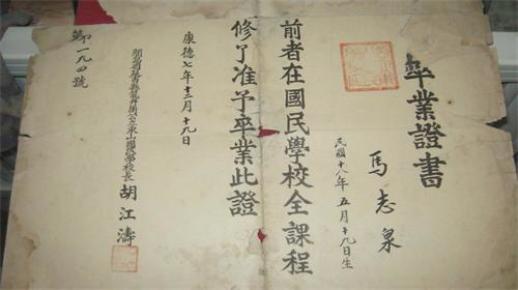 卒業證書
馬志泉
民國十八年五月十九日生
前者在國民學校全課程
修了准予卒業此證
康德七年十二月十九日
國民學校長 胡江濤
第一九四號